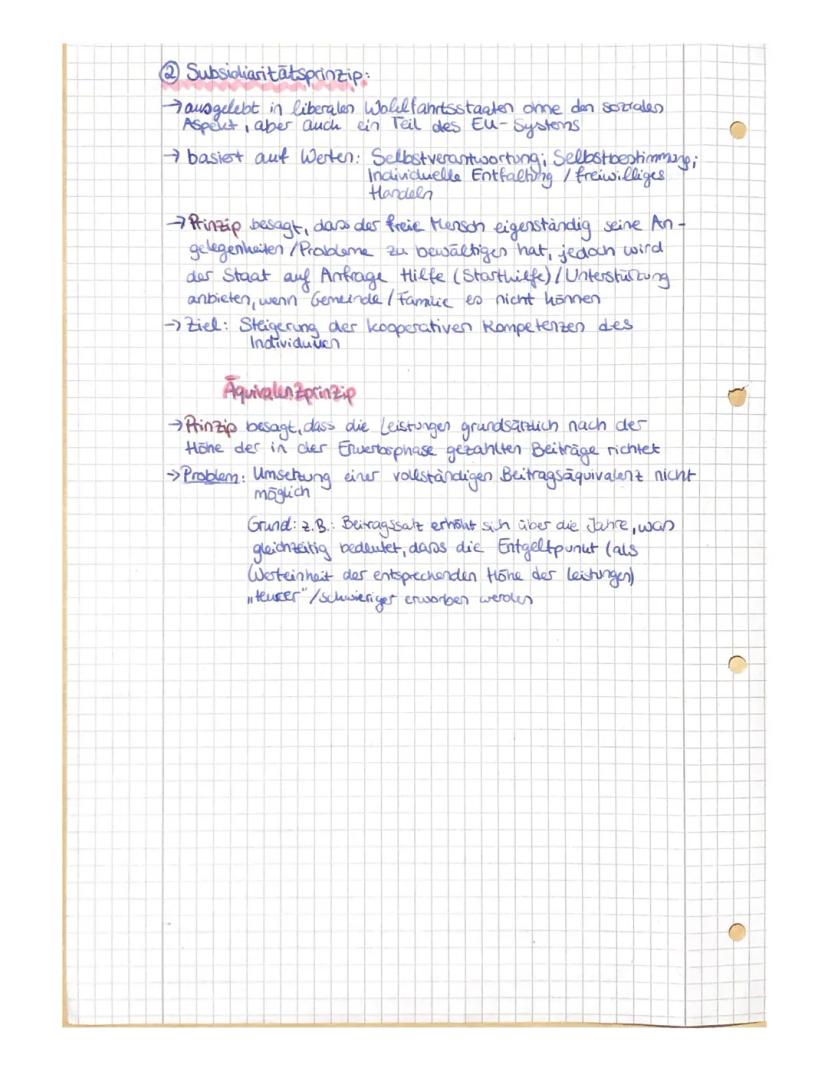 ② Subsidiaritätsprinzip:
→ ausgelebt in liberalen Wohlfahrtsstaaten ohne den sozialen
Aspekt, aber auch ein Teil des EU-Systems
→ basiert auf Werten: Selbstverantwortung; Selbstbestimmung;
Individuelle Entfaltung / freiwilliges
Handeln
→ Prinzip besagt, dass der freie Mensch eigenständig seine An-
gelegenheiten / Probleme zu bewältigen hat, jedoch wird
der Staat auf Anfrage Hilfe (Starthilfe) / Unterstützung
anbieten, wenn Gemeinde / Familie es nicht können
→ Ziel: Steigerung der kooperativen Kompetenzen des
Individuuen
Äquivalenzprinzip
→ Prinzip besagt, dass die Leistungen grundsätzlich nach der
Höhe der in der Erwerbsphase gezahlten Beiträge richtet
→ Problem: Umsetzung einer vollständigen Beitragsäquivalenz nicht
möglich
Grund: z.B.: Beitragssatz erhöht sich über die Jahre, was
gleichzeitig bedeutet, dass die Entgeltpunkt (als
Werteinheit der entsprechenden Höhe der Leistungen)
„teurer" / schwieriger erworben werden